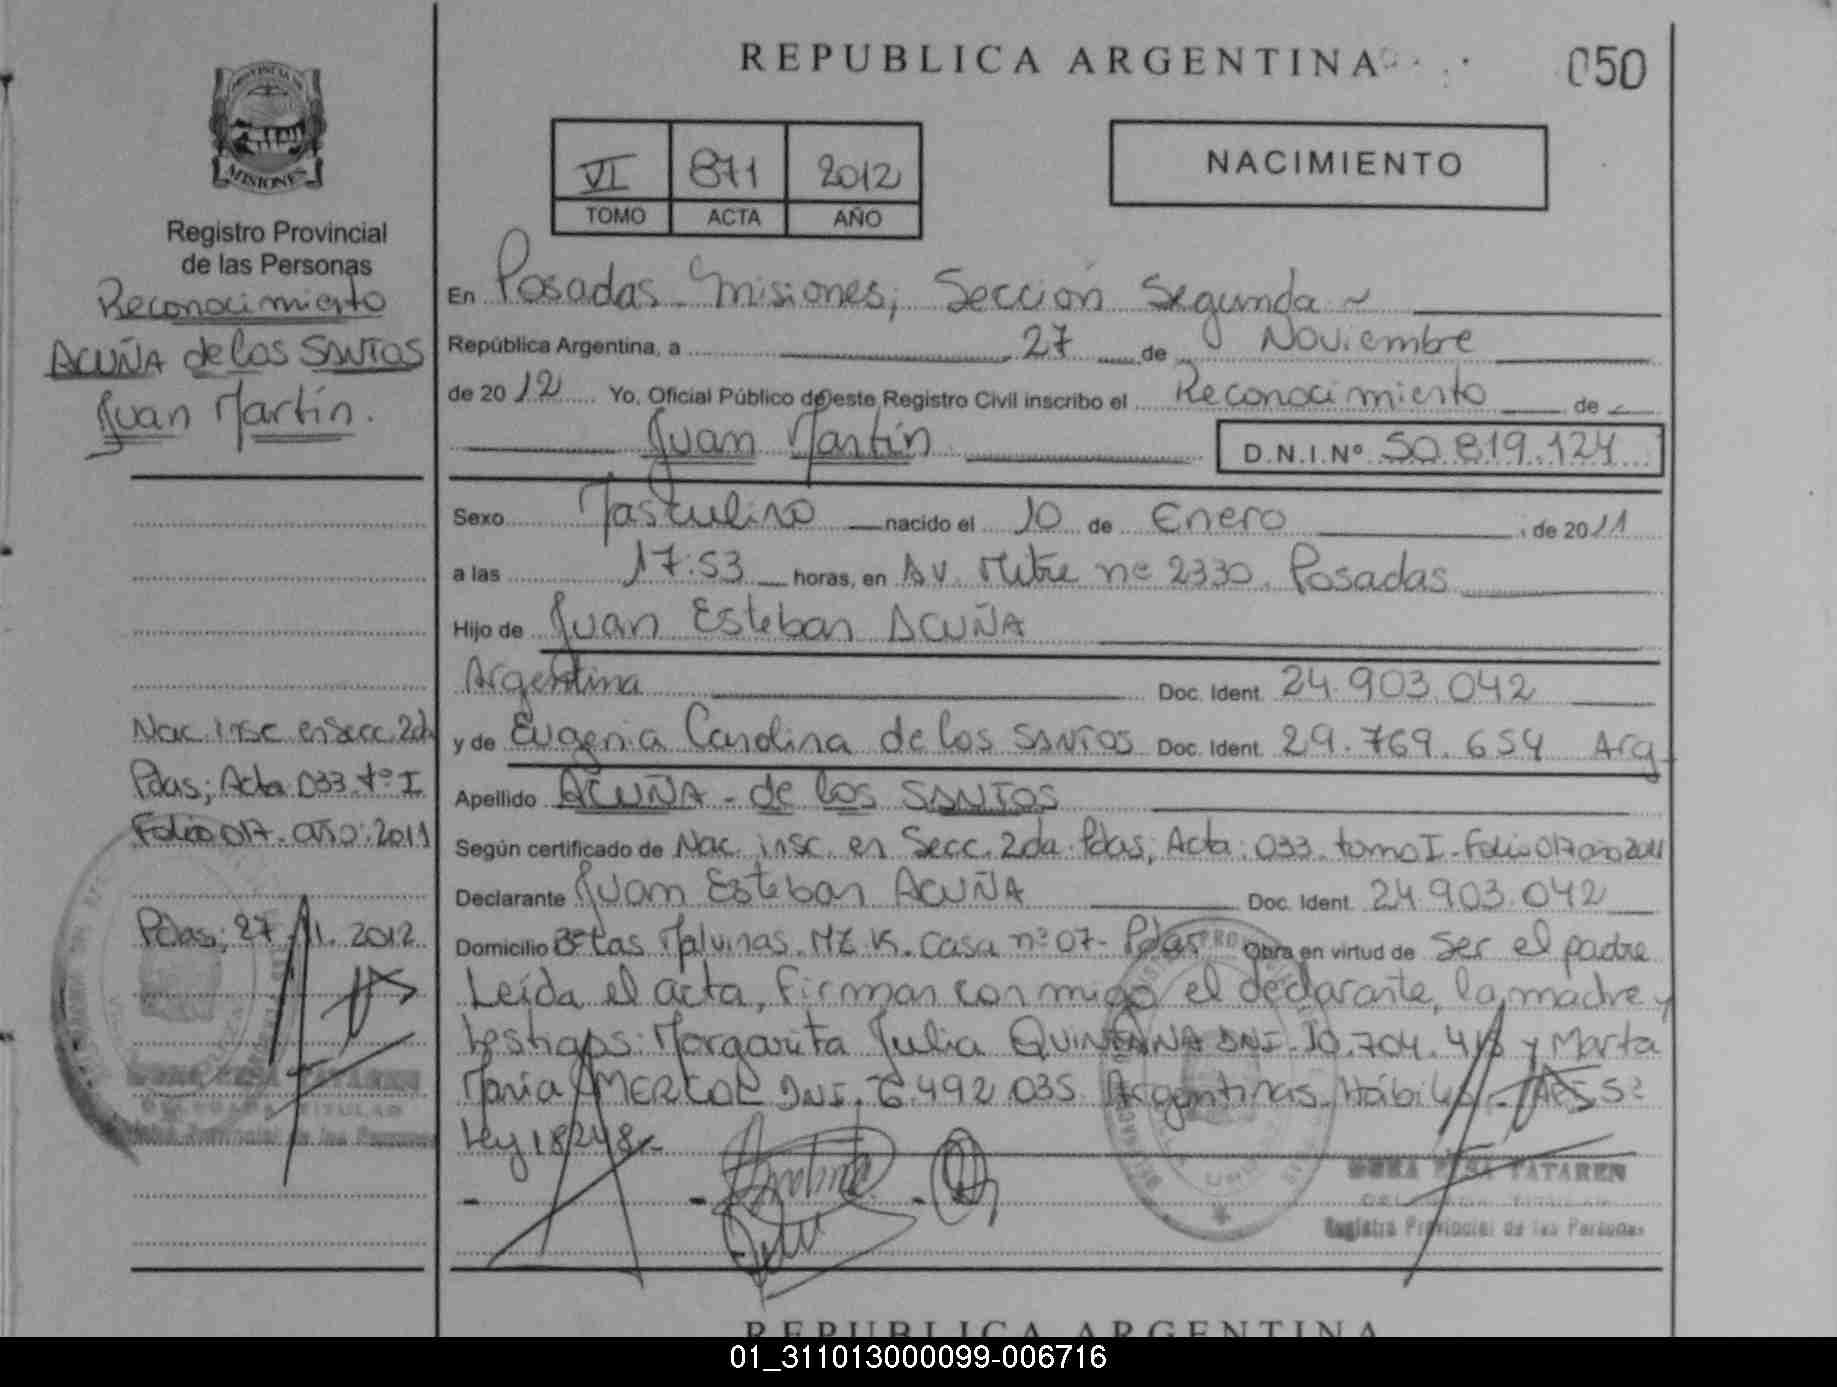 REPUBLICA ARGENTINA
050
PROVINCIA DE
MISIONES
Registro Provincial
de las Personas
Reconocimiento
ACUÑA de los SANTOS
Juan Martín.
Nac. insc en Secc. 2da
Pdas; Acta 033. tº I
Folio 017. año: 2011
Pdas; 27.11.2012
VI 871 2012
TOMO ACTA AÑO
NACIMIENTO
En Posadas - Misiones; Sección Segunda
República Argentina, a 27 de Noviembre
de 2012 Yo, Oficial Público de este Registro Civil inscribo el Reconocimiento de
Juan Martín D.N.I.Nº 50.819.124
Sexo Masculino nacido el 10 de Enero de 2011
a las 17:53 horas, en Av. Mitre nº 2330. Posadas
Hijo de Juan Esteban ACUÑA
Argentina Doc. Ident. 24.903.042
y de Eugenia Carolina de los SANTOS Doc. Ident. 29.769.654 Arg
Apellido ACUÑA - de los SANTOS
Según certificado de Nac. insc. en Secc. 2da. Pdas; Acta: 033. tomo I - Folio 017 año 2011
Declarante Juan Esteban ACUÑA Doc. Ident. 24.903.042
Domicilio Bº Las Malvinas. MZ. K. Casa nº 07 - Pdas Obra en virtud de ser el padre
Leída el acta, firman conmigo el declarante, la madre y
testigos: Margarita Julia QUINTANA DNI. 10.704. y Marta
María DNI. 6.492.035. Argentinas. Hábiles -
Ley 18248.-
TATAREN
DELEGADA TITULAR
Registro Provincial de las Personas
TATAREN
Registro Provincial de las Personas
REPUBLICA ARGENTINA
01_311013000099-006716